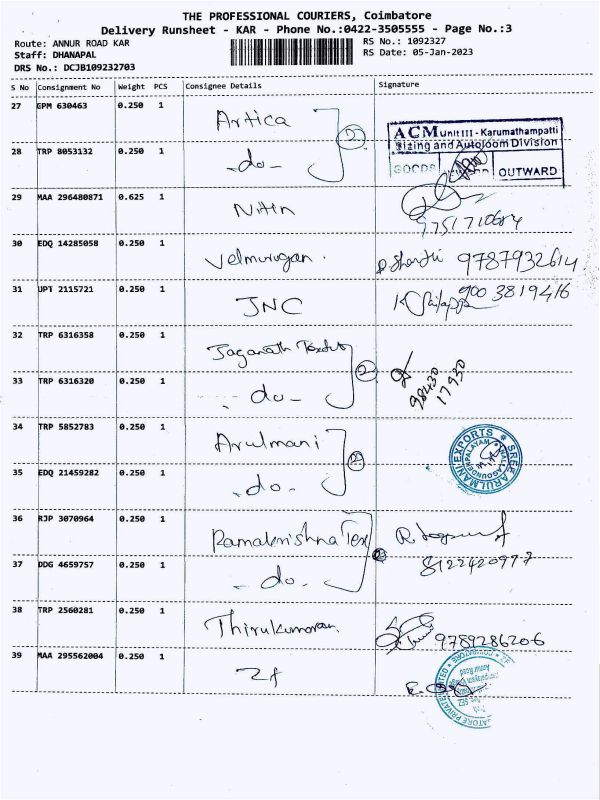 THE PROFESSIONAL COURIERS, Coimbatore
Delivery Runsheet - KAR - Phone No.:0422-3505555 - Page No.:3
Route: ANNUR ROAD KAR
RS No.: 1092327
Staff: DHANAPAL
RS Date: 05-Jan-2023
DRS No.: DCJB109232703
S No Consignment No Weight PCS Consignee Details Signature
27 GPM 630463 0.250 1 Artica
ACM Unit III - Karumathampatti
Sizing and Autoloom Division
GOODS OUTWARD
28 TRP 8053132 0.250 1 -do- 2
29 MAA 296480871 0.625 1 Nitin
9751710684
30 EDQ 14285058 0.250 1 Velmurugan. 9787932614
31 UPT 2115721 0.250 1 JNC 900 3819416
32 TRP 6316358 0.250 1 Jaganath
33 TRP 6316320 0.250 1 -do- 2 98430
17930
34 TRP 5852783 0.250 1 Arulmani
SREE ARULMANI EXPORTS
35 EDQ 21459282 0.250 1 -do- 2
36 RJP 3070964 0.250 1 Ramakrishna Tex
37 DDG 4659757 0.250 1 -do- 2 8122420977
38 TRP 2560281 0.250 1 Thirukumaran. 9789286206
39 MAA 295562004 0.250 1 Zf